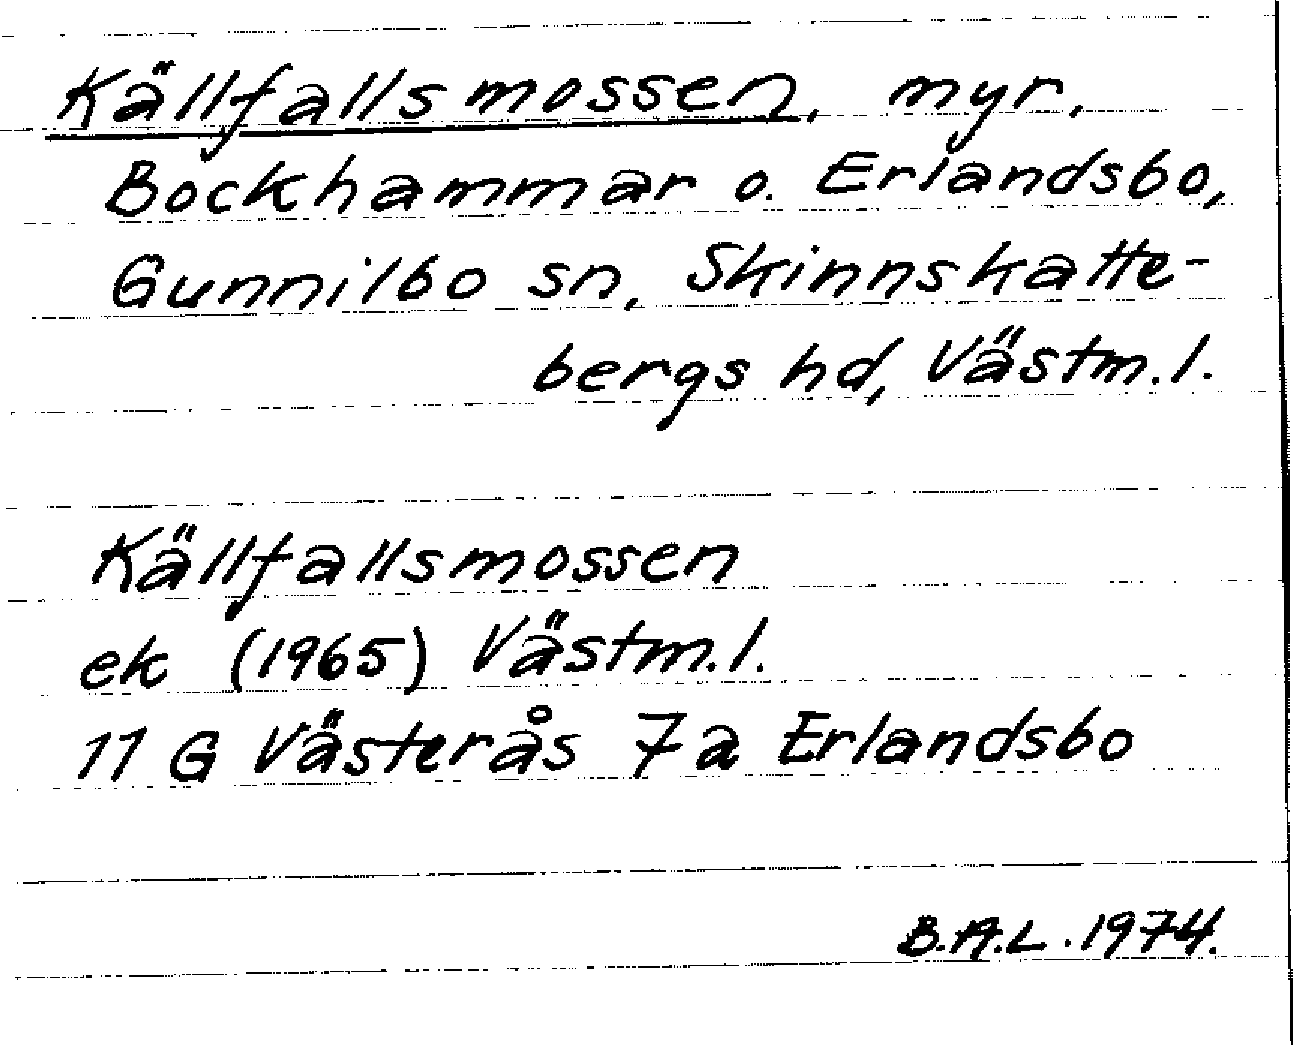 Källfallsmossen, myr.
Bockhammar o. Erlandsbo,
Gunnilbo sn, Skinnskatte-
bergs hd, Västm.l.
Källfallsmossen
ek (1965) Västm.l.
11 G Västerås 7a Erlandsbo
B.A.L. 1974.